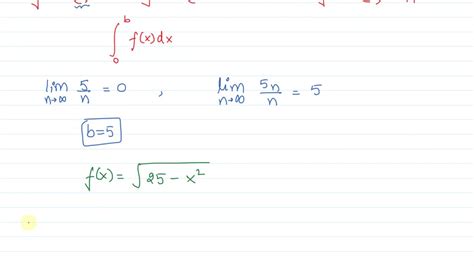 ∫₀ᵇ f(x)dx
lim n→∞ 5/n = 0 , lim n→∞ 5n/n = 5
b=5
f(x) = √(25 − x²)